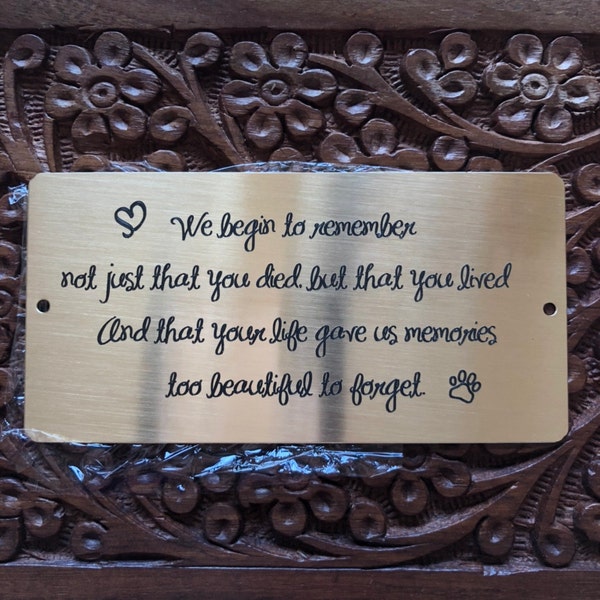 We begin to remember
not just that you died, but that you lived
And that your life gave us memories
too beautiful to forget.